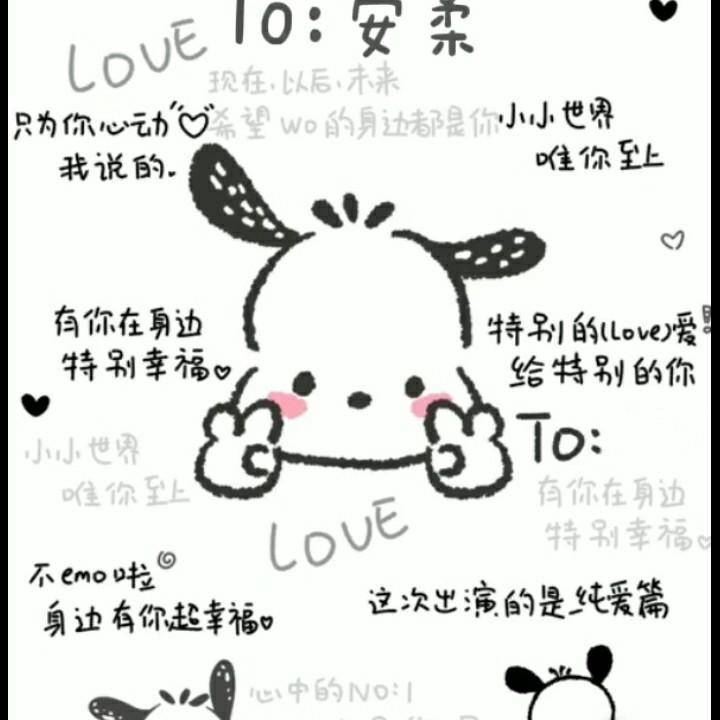 To: 安柔
LOVE
现在,以后,未来
希望 wo 的身边都是你
只为你心动
我说的.
小小世界
唯你至上
有你在身边
特别幸福
特别的(Love)爱
给特别的你
To:
小小世界
唯你至上
有你在身边
特别幸福
LOVE
不emo啦
身边有你超幸福
这次出演的是纯爱篇
心中的NO:1